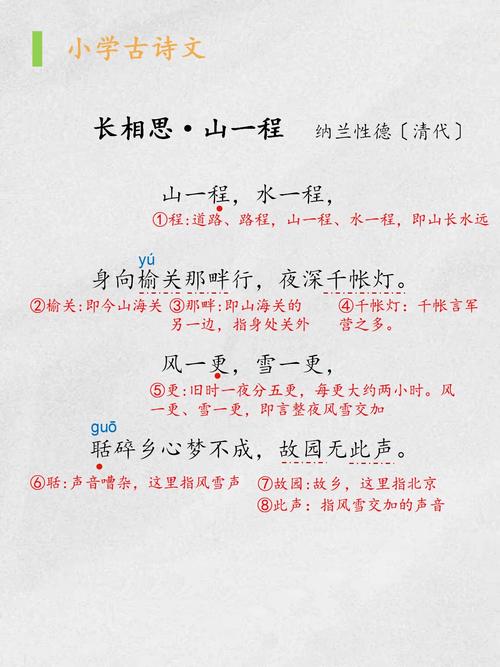 小学古诗文
长相思·山一程 纳兰性德〔清代〕
山一程，水一程，
①程:道路、路程，山一程、水一程，即山长水远
yú
身向榆关那畔行，夜深千帐灯。
②榆关:即今山海关 ③那畔:即山海关的 ④千帐灯：千帐言军
另一边，指身处关外 营之多。
风一更，雪一更，
⑤更:旧时一夜分五更，每更大约两小时。风
一更、雪一更，即言整夜风雪交加
guō
聒碎乡心梦不成，故园无此声。
⑥聒:声音嘈杂，这里指风雪声 ⑦故园:故乡，这里指北京
⑧此声：指风雪交加的声音